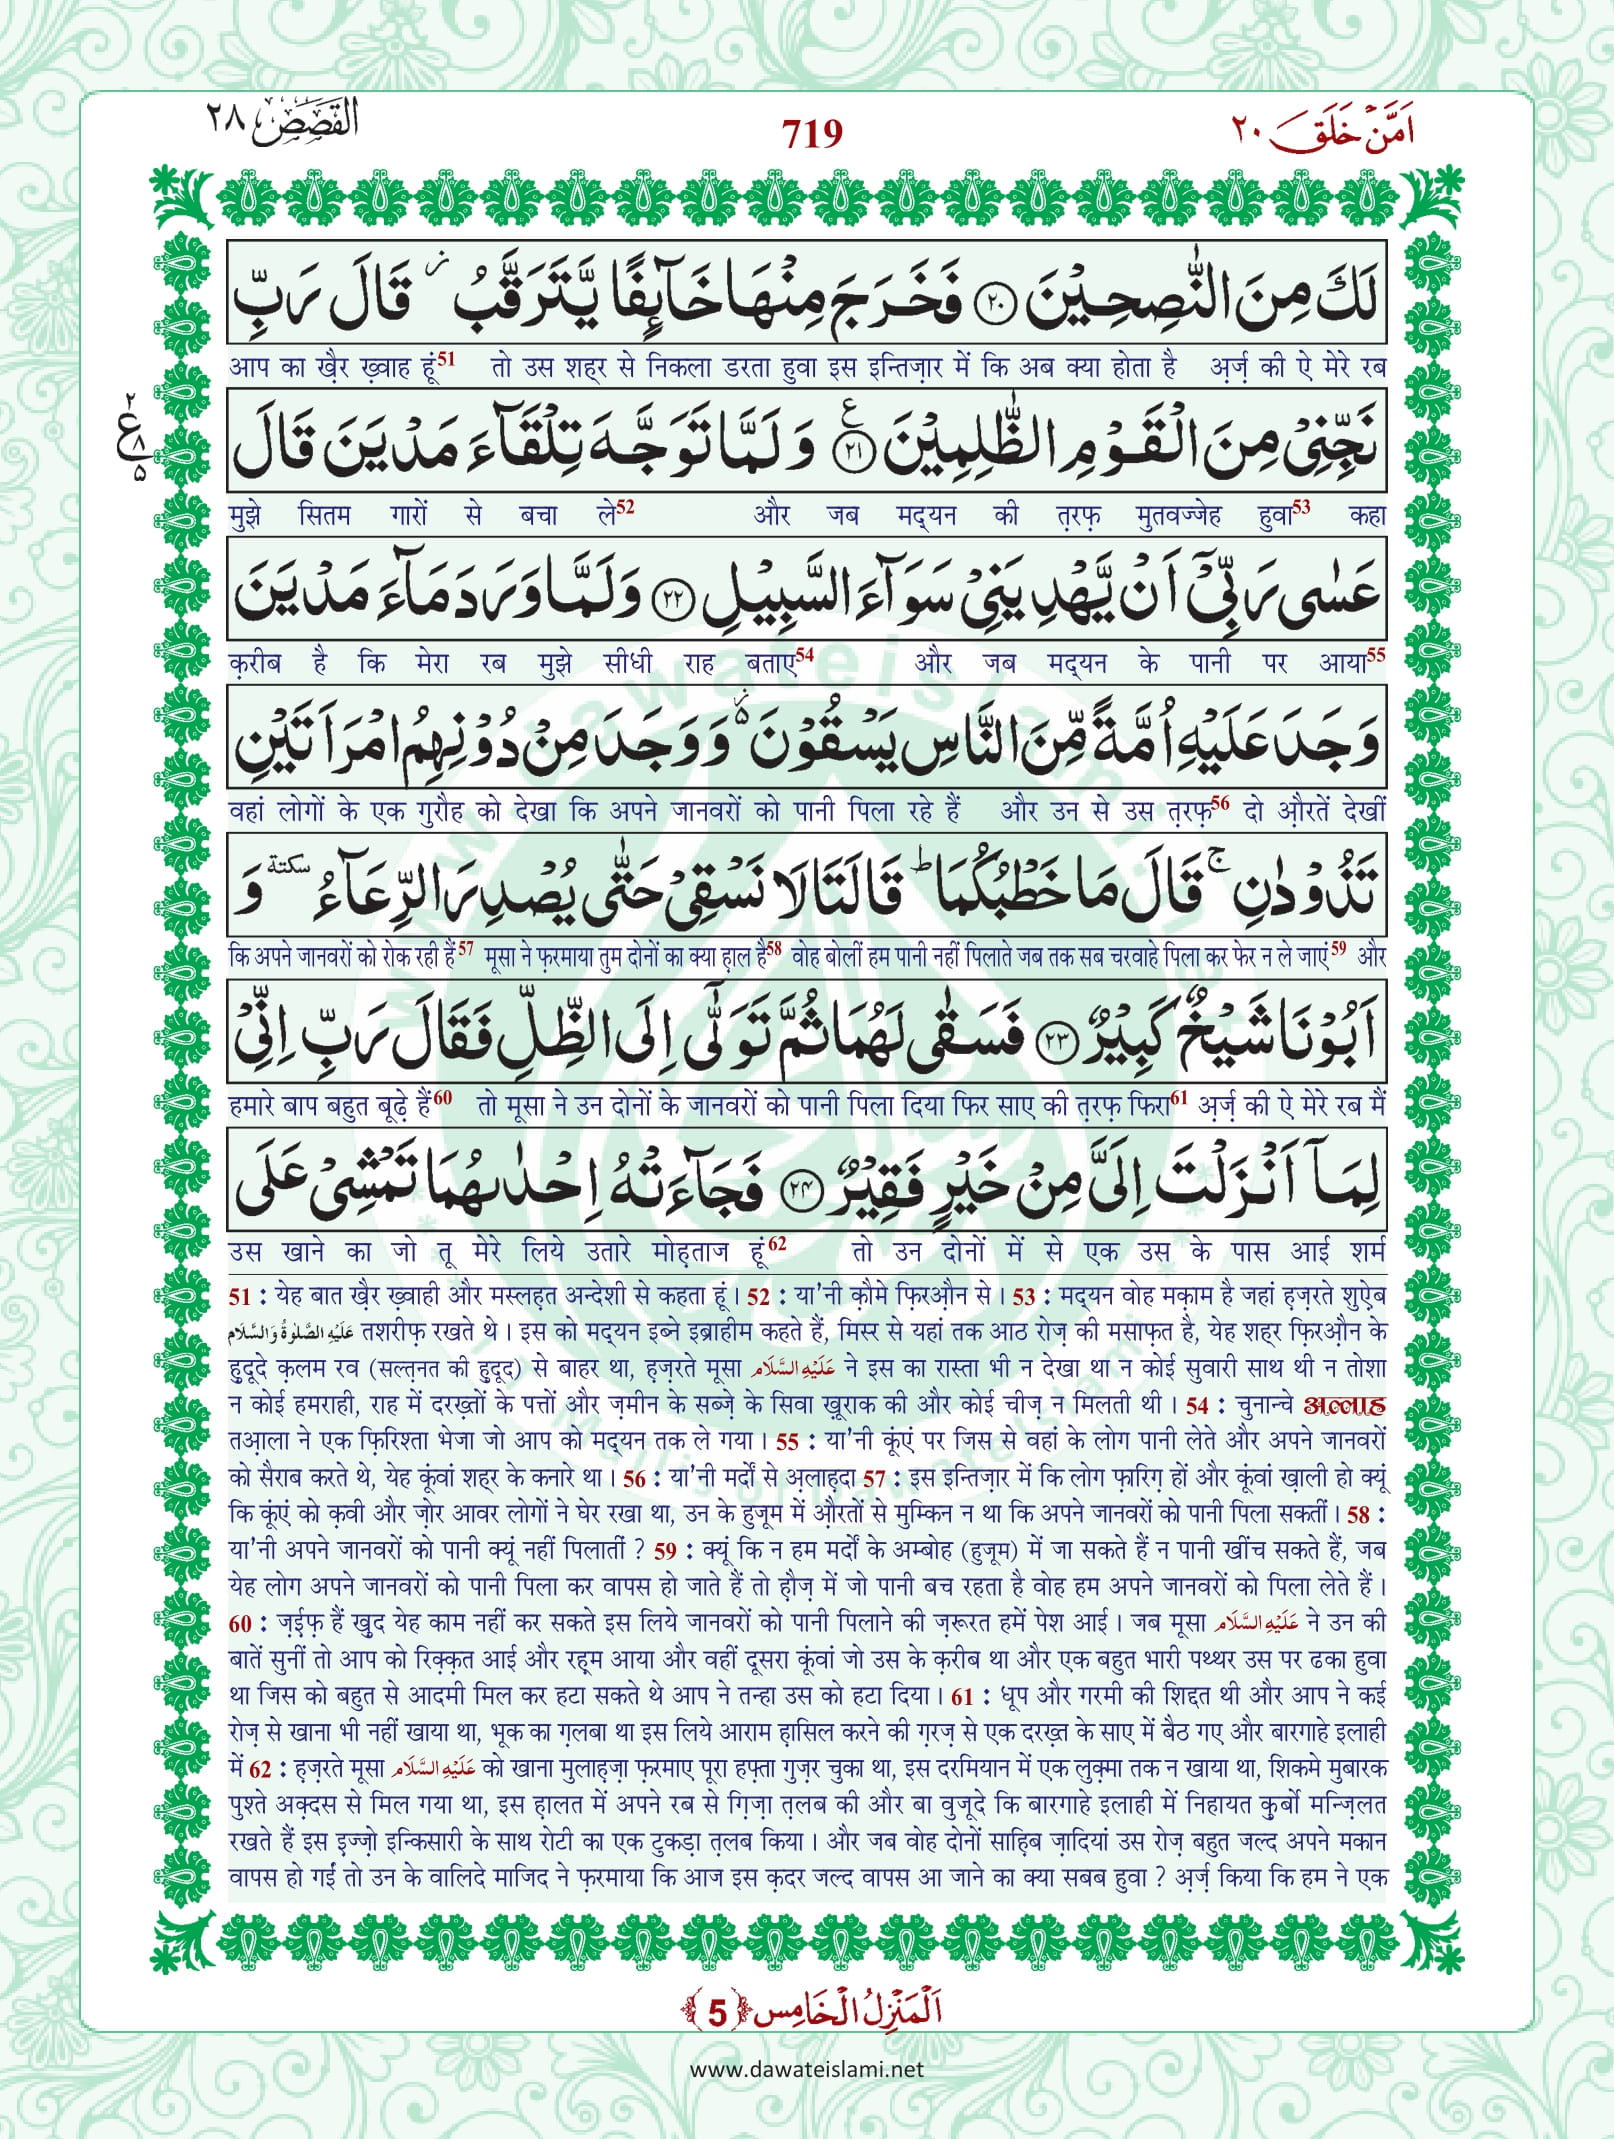 اَمَّنْ خَلَقَ ٢٠
719
القَصَص ٢٨
لَكَ مِنَ النّٰصِحِیْنَ ﴿۲۰﴾ فَخَرَجَ مِنْهَا خَآىٕفًا یَّتَرَقَّبُ ٘ قَالَ رَبِّ
आप का ख़ैर ख़्वाह हूं51 तो उस शह्र से निकला डरता हुवा इस इन्तिज़ार में कि अब क्या होता है अ़र्ज़ की ऐ मेरे रब
نَجِّنِیْ مِنَ الْقَوْمِ الظّٰلِمِیْنَ ﴿۲۱﴾ ع وَ لَمَّا تَوَجَّهَ تِلْقَآءَ مَدْیَنَ قَالَ
٢ ع ٨ ٥
मुझे सितम गारों से बचा ले52 और जब मद्यन की त़रफ़ मुतवज्जेह हुवा53 कहा
عَسٰى رَبِّیْۤ اَنْ یَّهْدِیَنِیْ سَوَآءَ السَّبِیْلِ ﴿۲۲﴾ وَ لَمَّا وَرَدَ مَآءَ مَدْیَنَ
क़रीब है कि मेरा रब मुझे सीधी राह बताए54 और जब मद्यन के पानी पर आया55
وَجَدَ عَلَیْهِ اُمَّةً مِّنَ النَّاسِ یَسْقُوْنَ ٘۬ وَ وَجَدَ مِنْ دُوْنِهِمُ امْرَاَتَیْنِ
वहां लोगों के एक गुरौह को देखा कि अपने जानवरों को पानी पिला रहे हैं और उन से उस त़रफ़56 दो औ़रतें देखीं
تَذُوْدٰنِ ۚ قَالَ مَا خَطْبُكُمَا ؕ قَالَتَا لَا نَسْقِیْ حَتّٰى یُصْدِرَ الرِّعَآءُ سكتة وَ
कि अपने जानवरों को रोक रही हैं57 मूसा ने फ़रमाया तुम दोनों का क्या ह़ाल है58 वोह बोलीं हम पानी नहीं पिलाते जब तक सब चरवाहे पिला कर फेर न ले जाएं59 और
اَبُوْنَا شَیْخٌ كَبِیْرٌ ﴿۲۳﴾ فَسَقٰى لَهُمَا ثُمَّ تَوَلّٰۤى اِلَى الظِّلِّ فَقَالَ رَبِّ اِنِّیْ
हमारे बाप बहुत बूढ़े हैं60 तो मूसा ने उन दोनों के जानवरों को पानी पिला दिया फिर साए की त़रफ़ फिरा61 अ़र्ज़ की ऐ मेरे रब मैं
لِمَاۤ اَنْزَلْتَ اِلَیَّ مِنْ خَیْرٍ فَقِیْرٌ ﴿۲۴﴾ فَجَآءَتْهُ اِحْدٰىهُمَا تَمْشِیْ عَلَى
उस खाने का जो तू मेरे लिये उतारे मोह़ताज हूं62 तो उन दोनों में से एक उस के पास आई शर्म
51 : येह बात ख़ैर ख़्वाही और मस्लह़त अन्देशी से कहता हूं। 52 : या'नी क़ौमे फ़िरऔ़न से। 53 : मद्यन वोह मक़ाम है जहां ह़ज़रते शुऐ़ब
عَلَیْهِ الصَّلٰوةُ وَالسَّلَام तशरीफ़ रखते थे। इस को मद्यन इब्ने इब्राहीम कहते हैं, मिस्र से यहां तक आठ रोज़ की मसाफ़त है, येह शह्र फ़िरऔ़न के
ह़ुदूदे क़लम रव (सल्त़नत की ह़ुदूद) से बाहर था, ह़ज़रते मूसा عَلَیْهِ السَّلَام ने इस का रास्ता भी न देखा था न कोई सुवारी साथ थी न तोशा
न कोई हमराही, राह में दरख़्तों के पत्तों और ज़मीन के सब्ज़े के सिवा ख़ूराक की और कोई चीज़ न मिलती थी। 54 : चुनान्चे अल्लाह
तआ़ला ने एक फ़िरिश्ता भेजा जो आप को मद्यन तक ले गया। 55 : या'नी कूंएं पर जिस से वहां के लोग पानी लेते और अपने जानवरों
को सैराब करते थे, येह कूंवां शह्र के कनारे था। 56 : या'नी मर्दों से अ़लाह़दा 57 : इस इन्तिज़ार में कि लोग फ़ारिग़ हों और कूंवां ख़ाली हो क्यूं
कि कूंएं को क़वी और ज़ोर आवर लोगों ने घेर रखा था, उन के हुजूम में औ़रतों से मुम्किन न था कि अपने जानवरों को पानी पिला सकतीं। 58 :
या'नी अपने जानवरों को पानी क्यूं नहीं पिलातीं ? 59 : क्यूं कि न हम मर्दों के अम्बोह (हुजूम) में जा सकते हैं न पानी खींच सकते हैं, जब
येह लोग अपने जानवरों को पानी पिला कर वापस हो जाते हैं तो ह़ौज़ में जो पानी बच रहता है वोह हम अपने जानवरों को पिला लेते हैं।
60 : ज़ई़फ़ हैं ख़ुद येह काम नहीं कर सकते इस लिये जानवरों को पानी पिलाने की ज़रूरत हमें पेश आई। जब मूसा عَلَیْهِ السَّلَام ने उन की
बातें सुनीं तो आप को रिक़्क़त आई और रह़्म आया और वहीं दूसरा कूंवां जो उस के क़रीब था और एक बहुत भारी पथ्थर उस पर ढका हुवा
था जिस को बहुत से आदमी मिल कर हटा सकते थे आप ने तन्हा उस को हटा दिया। 61 : धूप और गरमी की शिद्दत थी और आप ने कई
रोज़ से खाना भी नहीं खाया था, भूक का ग़लबा था इस लिये आराम ह़ासिल करने की ग़रज़ से एक दरख़्त के साए में बैठ गए और बारगाहे इलाही
में 62 : ह़ज़रते मूसा عَلَیْهِ السَّلَام को खाना मुलाह़ज़ा फ़रमाए पूरा हफ़्ता गुज़र चुका था, इस दरमियान में एक लुक़्मा तक न खाया था, शिकमे मुबारक
पुश्ते अक़्दस से मिल गया था, इस ह़ालत में अपने रब से ग़िज़ा त़लब की और बा वुजूदे कि बारगाहे इलाही में निहायत क़ुर्बो मन्ज़िलत
रखते हैं इस इ़ज्ज़ो इन्किसारी के साथ रोटी का एक टुकड़ा त़लब किया। और जब वोह दोनों साह़िब ज़ादियां उस रोज़ बहुत जल्द अपने मकान
वापस हो गईं तो उन के वालिदे माजिद ने फ़रमाया कि आज इस क़दर जल्द वापस आ जाने का क्या सबब हुवा ? अ़र्ज़ किया कि हम ने एक
اَلْمَنْزِلُ الْخَامِس ﴿5﴾
www.dawateislami.net